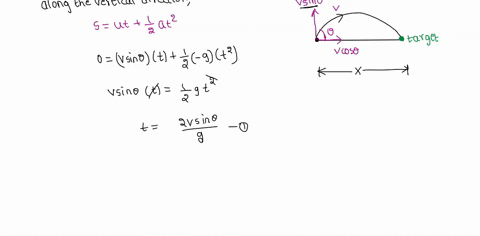 along the vertical direction,
S = ut + 1/2 at²
0 = (vsinθ)(t) + 1/2 (-g)(t²)
vsinθ (t) = 1/2 g t²
t = 2vsinθ/g — ①
vsinθ
v
θ
vcosθ
target
x